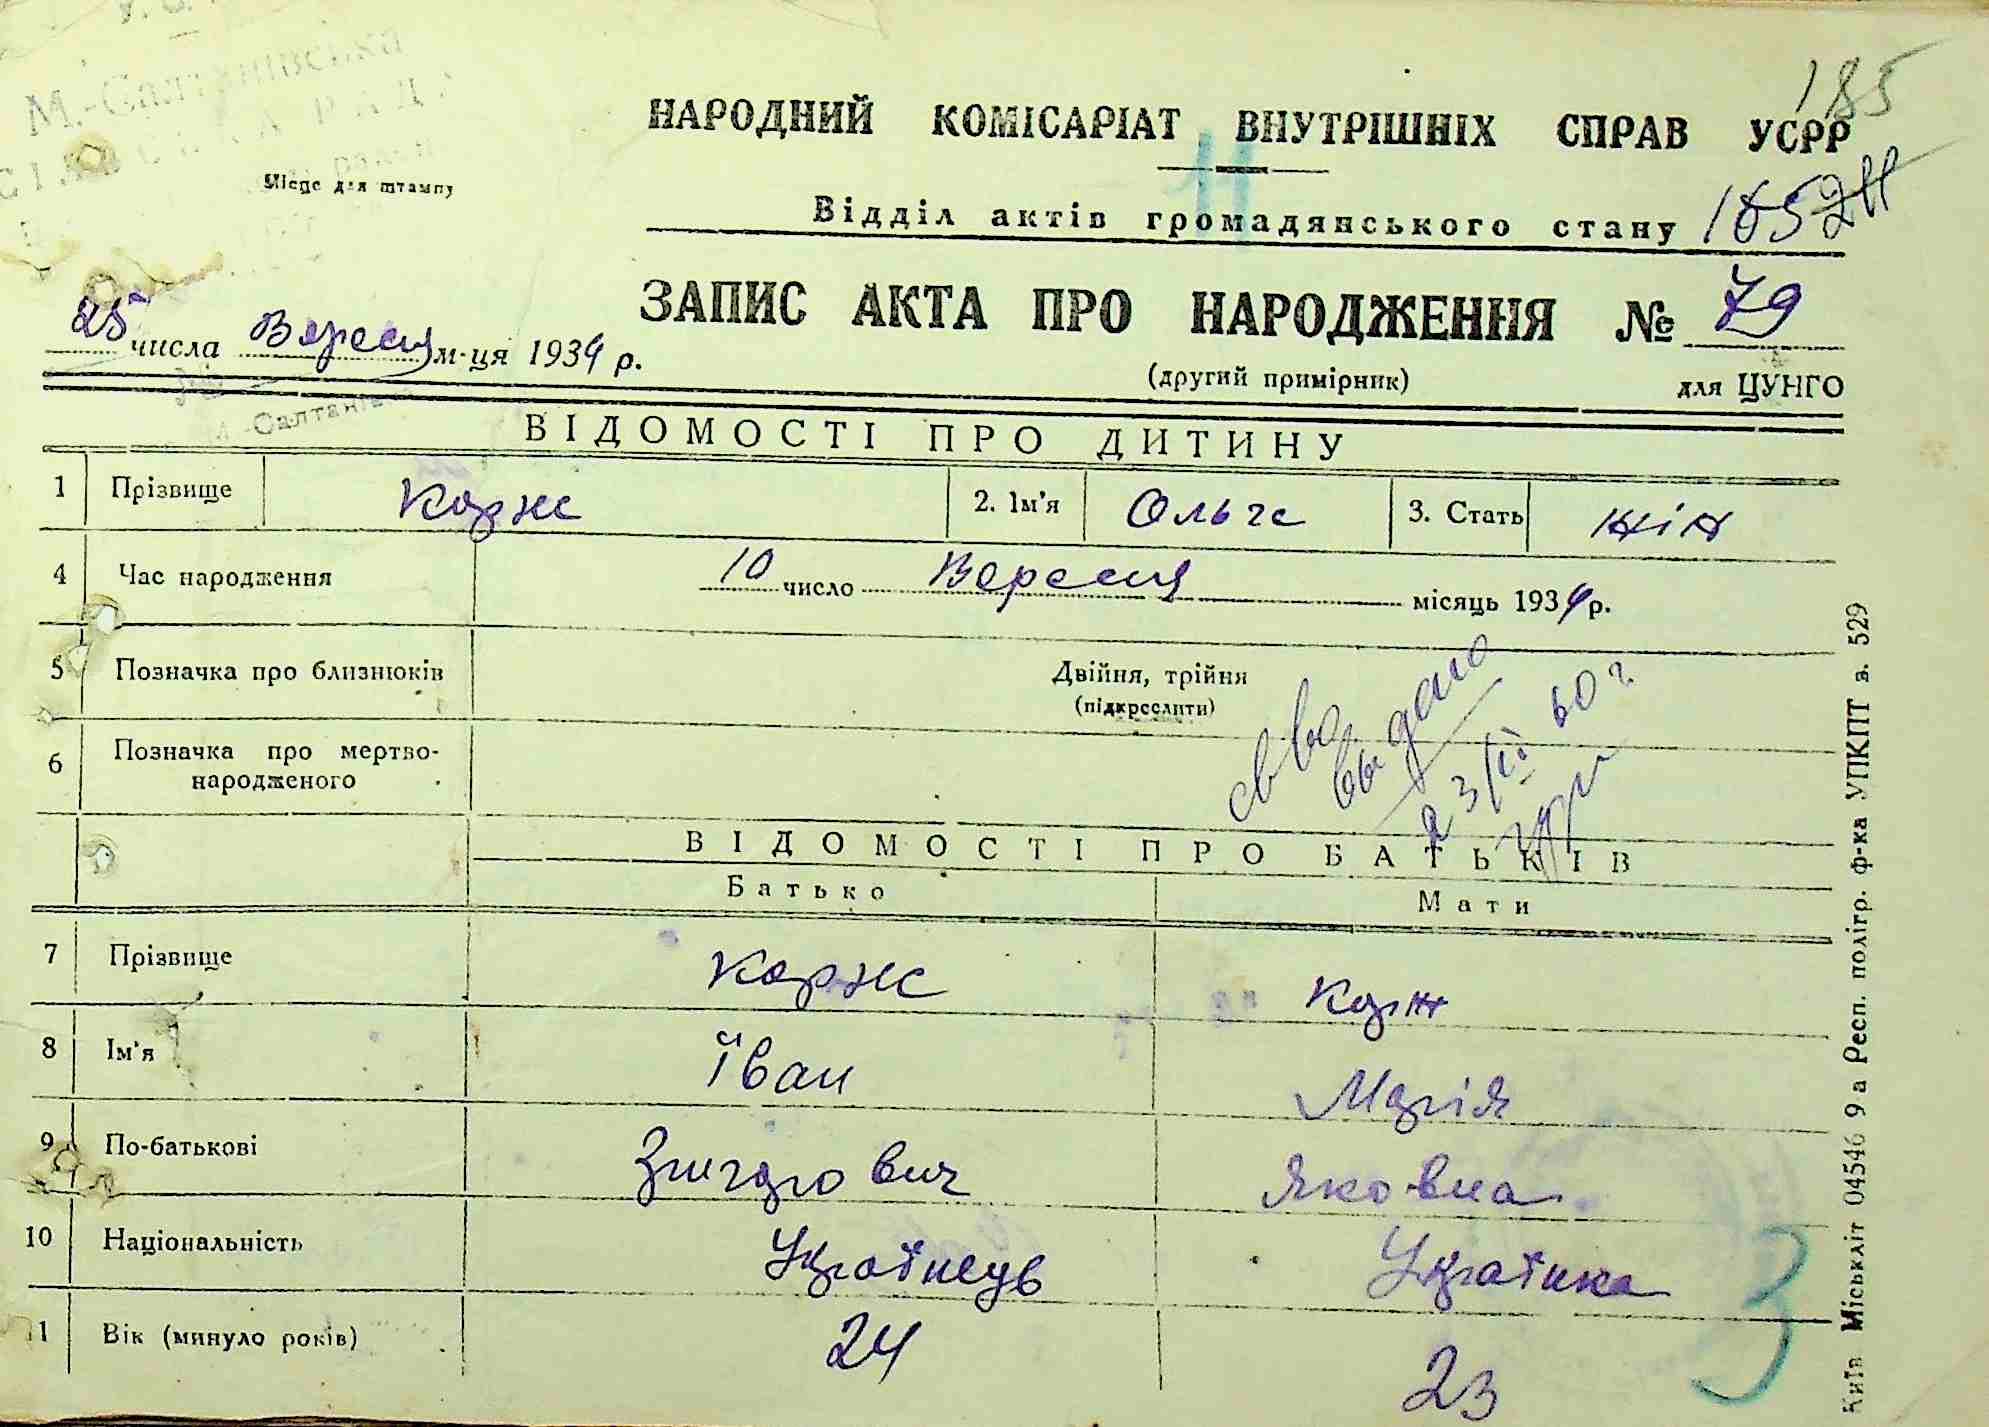 М.-Салтанівська
СІЛЬСЬКА РАДА
Місце для штампу
185
НАРОДНИЙ КОМІСАРІАТ ВНУТРІШНІХ СПРАВ УСРР
Відділ актів громадянського стану
ЗАПИС АКТА ПРО НАРОДЖЕННЯ № 79
25 числа Вересня м-ця 1934 р.
(другий примірник) для ЦУНГО
М-Салтанів
ВІДОМОСТІ ПРО ДИТИНУ
1 Прізвище Корж 2. Ім'я Ольга 3. Стать жін
4 Час народження 10 число Вересня місяць 1934 р.
5 Позначка про близнюків Двійня, трійня
(підкреслити)
6 Позначка про мертво-
народженого
св во
выдано
23/ІІ 60 г.
ВІДОМОСТІ ПРО БАТЬКІВ
Батько Мати
7 Прізвище Корж Корж
8 Ім'я Іван Марія
9 По-батькові Григорович Яковна
10 Національність Українець Українка
11 Вік (минуло років) 24 23
3
Київ Міськліт 04546 9 а Респ. полігр. ф-ка УПКПТ з. 529